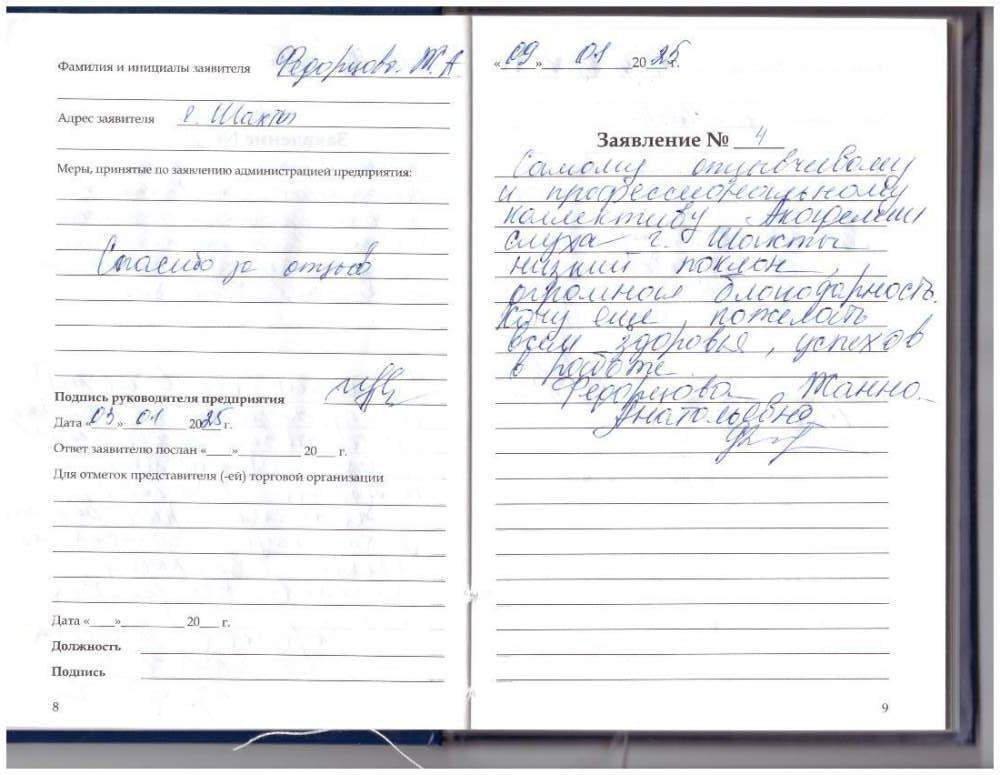 Фамилия и инициалы заявителя Федорцова. Ж.А.
Адрес заявителя г. Шахты
Меры, принятые по заявлению администрацией предприятия:
Спасибо за отзыв
Подпись руководителя предприятия
Дата «03» 01 2025 г.
Ответ заявителю послан «___»__________ 20___ г.
Для отметок представителя (-ей) торговой организации
Дата «____»__________ 20___ г.
Должность
Подпись
8
«09» 01 2025 г.
Заявление № 4
Самому отзывчивому
и профессиональному
коллективу Академии
слуха г. Шахты
низкий поклон,
огромная благодарность.
Хочу еще пожелать
всем здоровья, успехов
в работе.
Федорцова Жанна
Анатольевна
9